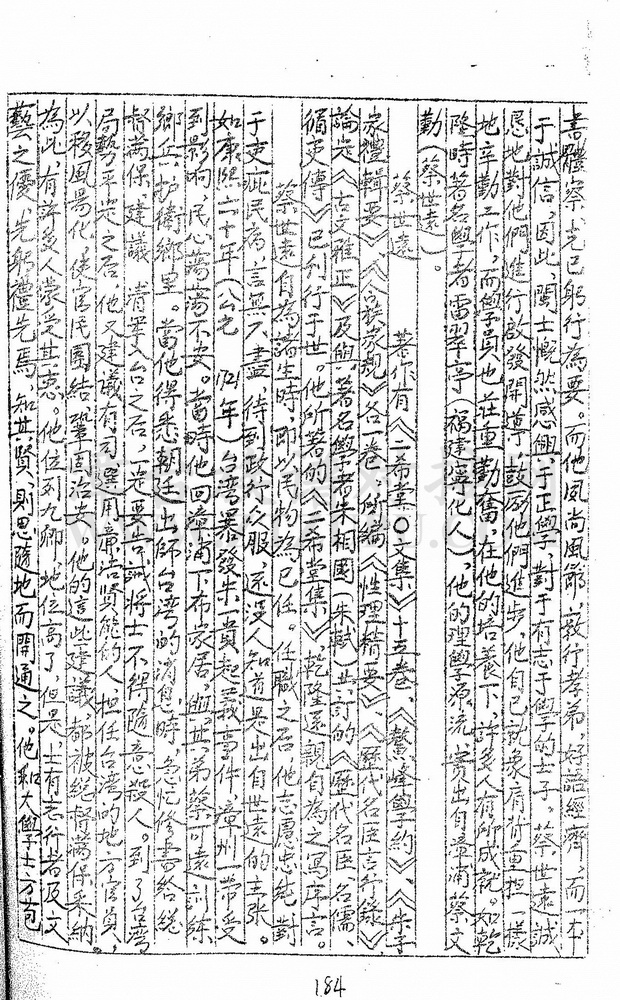 書體察、先已躬行為要。而他風尚風節、敦行孝弟、好語經濟、而一本
于誠信，因此，閩士慨然感興于正學，對于有志于學的士子。蔡世遠誠
懇地對他們進行啟發開導，鼓勵他們進步，他自己就象肩背重担一樣
地辛勤工作，而學員也莊重勤奮，在他的培養下，許多人有所成就。如乾
隆時著名學者雷翠亭（福建寧化人），他的理學源流，實出自漳浦蔡文
勤（蔡世遠）。
蔡世遠 著作有《二希堂〇文集》十五卷、《鰲峰學約》、《朱子
家禮輯要》、《合族家規》各一卷，所編《性理精要》、《歷代名臣言行錄》、
論定《古文雅正》及與著名學者朱相國（朱軾）共訂的《歷代名臣、名儒、
循吏傳》已刊行于世。他所著的《二希堂集》，乾隆還親自為之寫序言。
蔡世遠自為諸生時，即以民物為已任。任職之后，他志慮忠純，對
于吏疵民病，言無不盡，待到政行众服，還沒人知道是出自世遠的主張。
如康熙六十年（公元 1721年）台湾署發朱一貴起義事件，漳州一帶受
到影响，民心蕩漾不安。當時他回漳浦下布家居，與其弟蔡可遠訓練
鄉兵，护衛鄉里。當他得悉朝廷出師台湾的消息時，急忙修書給総
督满保建議，清軍入台之后，一定要告誡將士不得隨意殺人。到了台湾
局勢平定之后，他又建議有司選用廉洁賢能的人，担任台湾的地方官員，
以移風易化，使官民團結，鞏固治安。他的這些建議，都被総督满保采納，
為此，有許多人蒙受其惠。他位列九卿，地位高了，但是，士有志行者及文
藝之優，先躬禮先焉，知其賢、則思隨地而開通之。他和大學士方苞
184